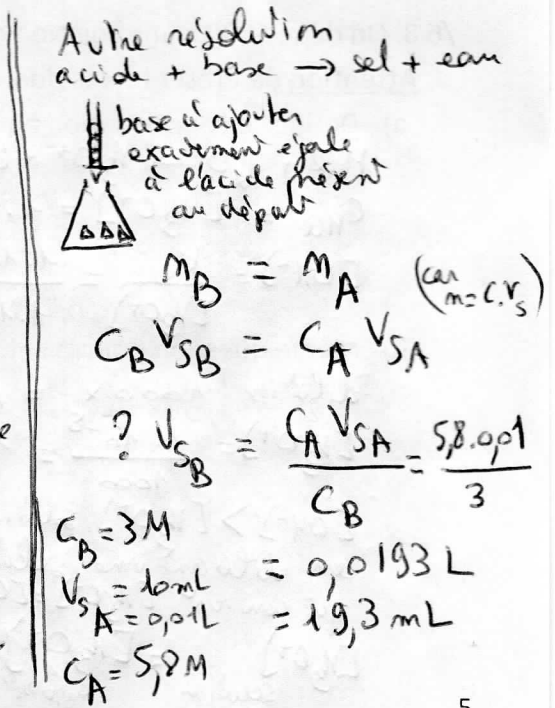 Autre résolution
acide + base → sel + eau
base à ajouter
exactement égale
à l'acide présent
au départ
n_B = n_A (car n = C.V_S)
C_B V_SB = C_A V_SA
? V_SB = C_A V_SA / C_B = 5,8.0,01 / 3
C_B = 3M
= 0,0193 L
V_SA = 10mL
= 0,01L
= 19,3 mL
C_A = 5,8M
5